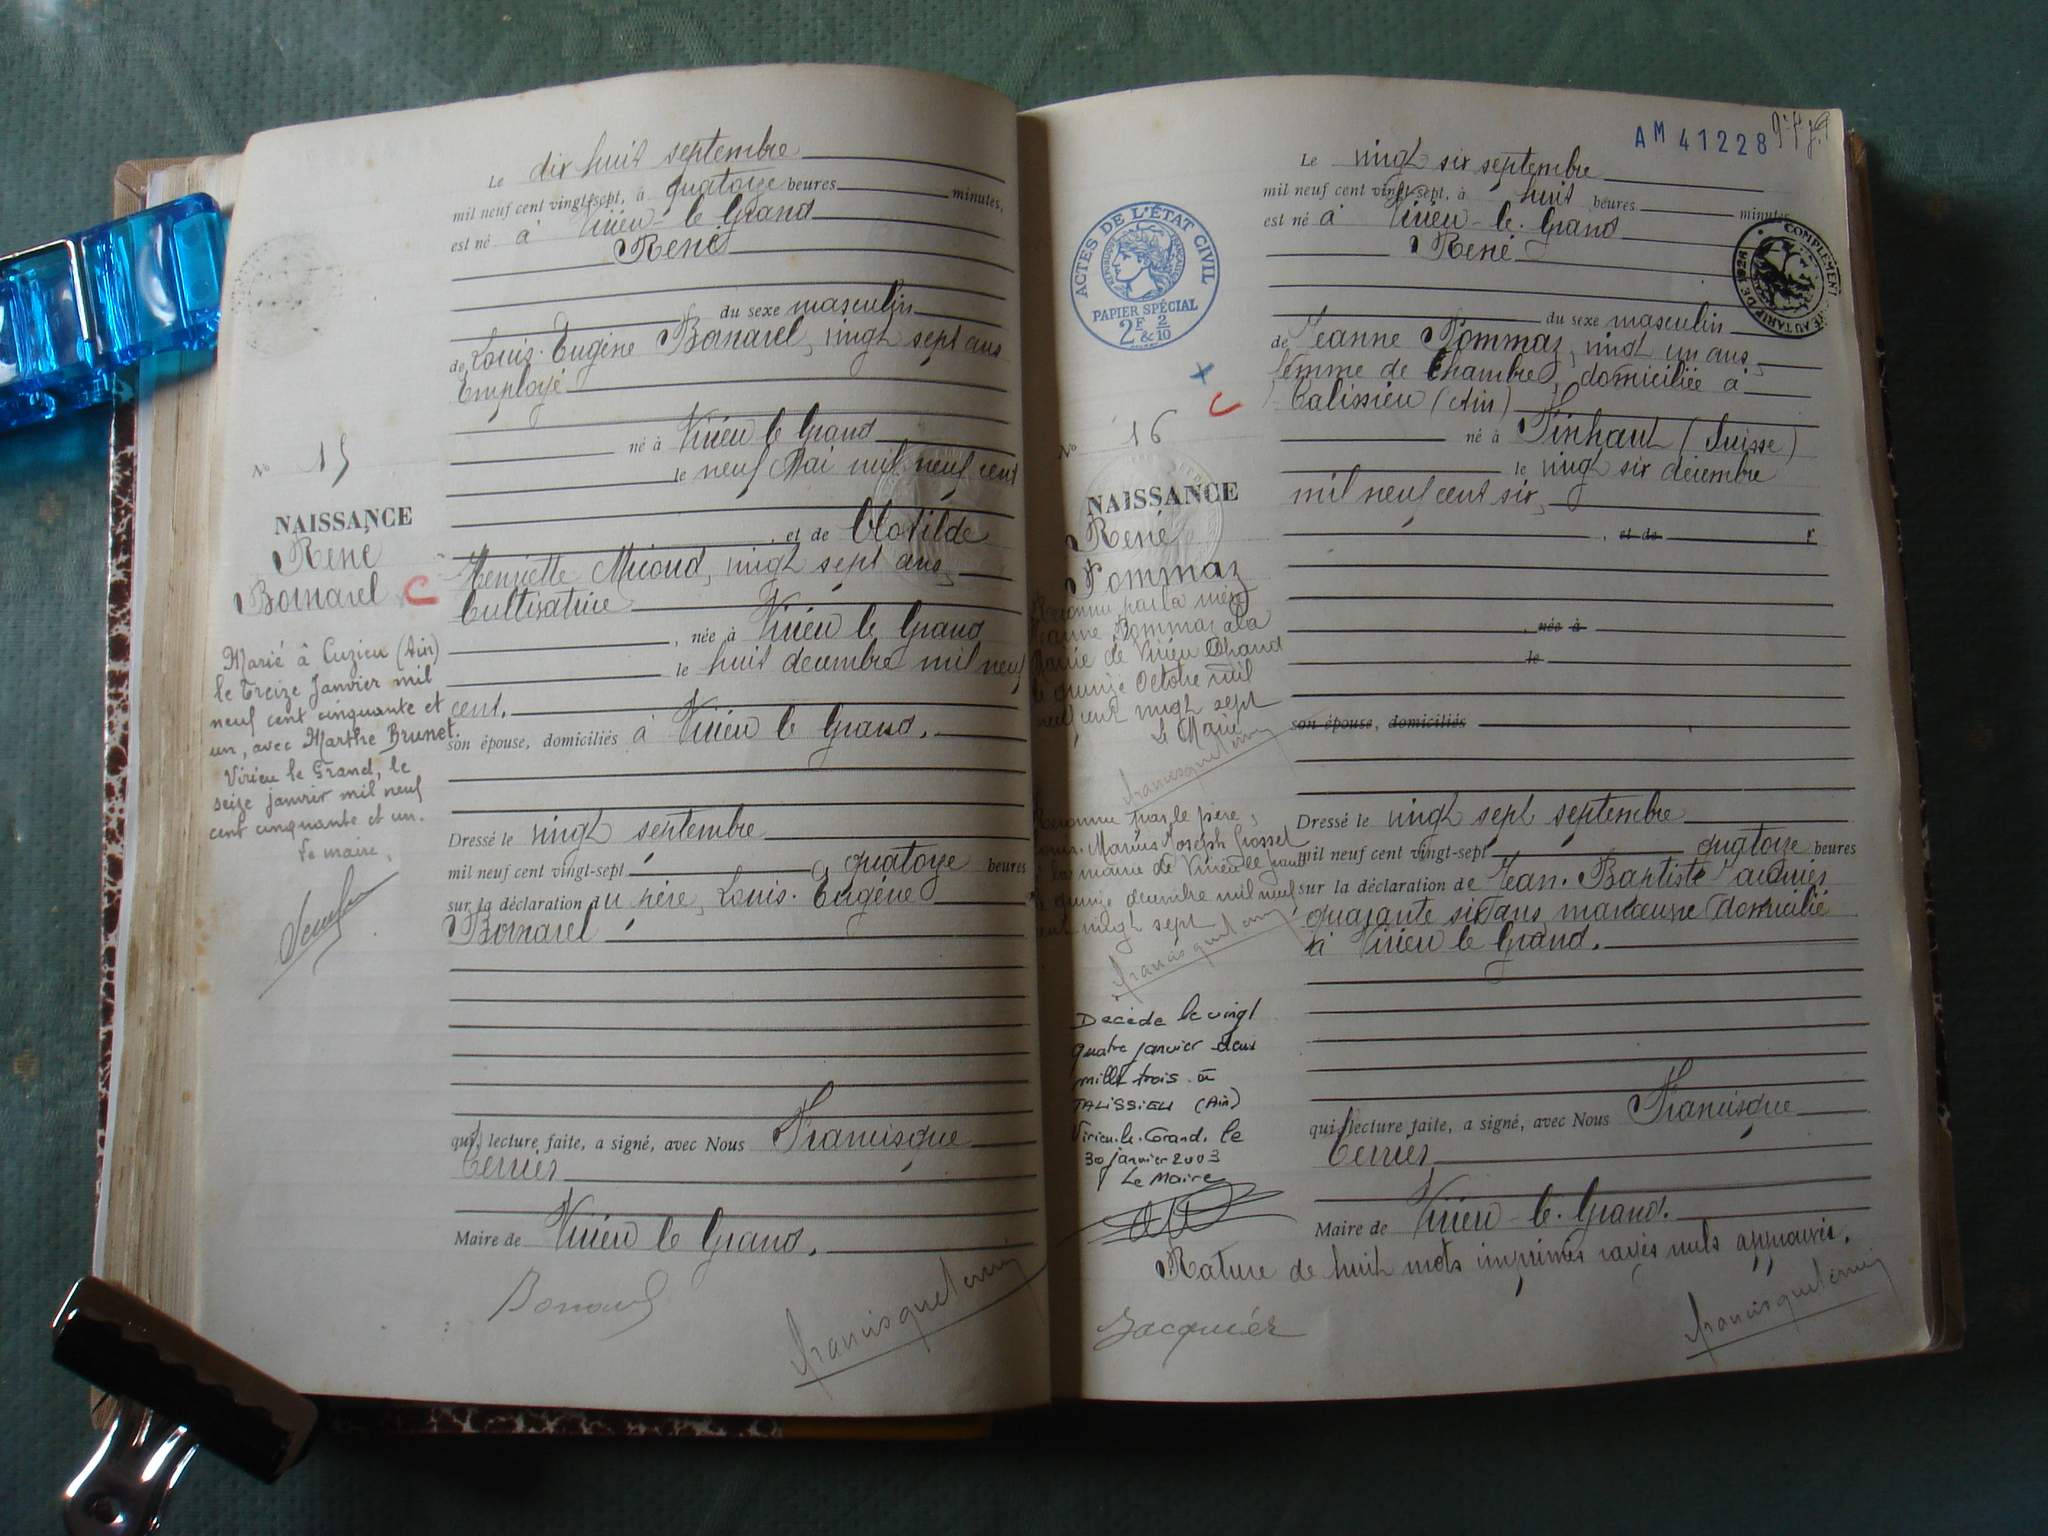 Le dix huit septembre
mil neuf cent vingt-sept, à quatorze heures minutes,
est né à Virieu-le Grand
René
du sexe masculin
de Louis-Eugène Bornarel, vingt sept ans
Employé
né à Virieu le Grand
le neuf Mai mil neuf cent
et de Clotilde
Henriette Micoud, vingt sept ans,
Cultivatrice
, née à Virieu le Grand
le huit décembre mil neuf
cent.
son épouse, domiciliés à Virieu le Grand.
Dressé le vingt septembre
mil neuf cent vingt-sept à quatorze heures
sur la déclaration du père, Louis-Eugène
Bornarel
qui, lecture faite, a signé, avec Nous Francisque
Terrier
Maire de Virieu le Grand.
Francisque Terrier
No 15
NAISSANCE
René
Bornarel
C
Marié à Cuzieu (Ain)
le Treize Janvier mil
neuf cent cinquante et
un, avec Marthe Brunet.
Virieu le Grand, le
seize janvier mil neuf
cent cinquante et un.
Le maire,
AM 41228
Le vingt six septembre
mil neuf cent vingt-sept, à huit heures minutes
est né à Virieu-le-Grand
René
du sexe masculin
de Jeanne Pommaz, vingt un ans,
femme de Chambre, domiciliée à
Talissieu (Ain)
né à Finhaut (Suisse)
le vingt six décembre
mil neuf cent six,
, et de
, née à
le
son épouse, domiciliés
Dressé le vingt sept septembre
mil neuf cent vingt-sept quatorze heures
sur la déclaration de Jean-Baptiste Jacquier
quarante six ans manœuvre domicilié
à Virieu le Grand.
qui, lecture faite, a signé, avec Nous Francisque
Terrier
Maire de Virieu-le-Grand.
Rature de huit mots imprimés rayés nuls approuvés.
Jacquier
Francisque Terrier
ACTES DE L'ÉTAT CIVIL
RÉPUBLIQUE FRANÇAISE
PAPIER SPÉCIAL
2F & 2/10
COMPLEMENT
AU TARIF DE
C
No 16
NAISSANCE
René
Pommaz
Reconnu par la mère
Jeanne Pommaz à la
Mairie de Virieu le Grand
le quinze Octobre mil
neuf cent vingt sept
Le Maire
Francisque Terrier
Reconnu par le père,
Marius Joseph Grosset
à la mairie de Virieu le Grand
le quinze décembre mil neuf
cent vingt sept
Francisque Terrier
Décédé le vingt
quatre janvier deux
mille trois à
TALISSIEU (Ain)
Virieu-le-Grand, le
30 janvier 2003
Le Maire